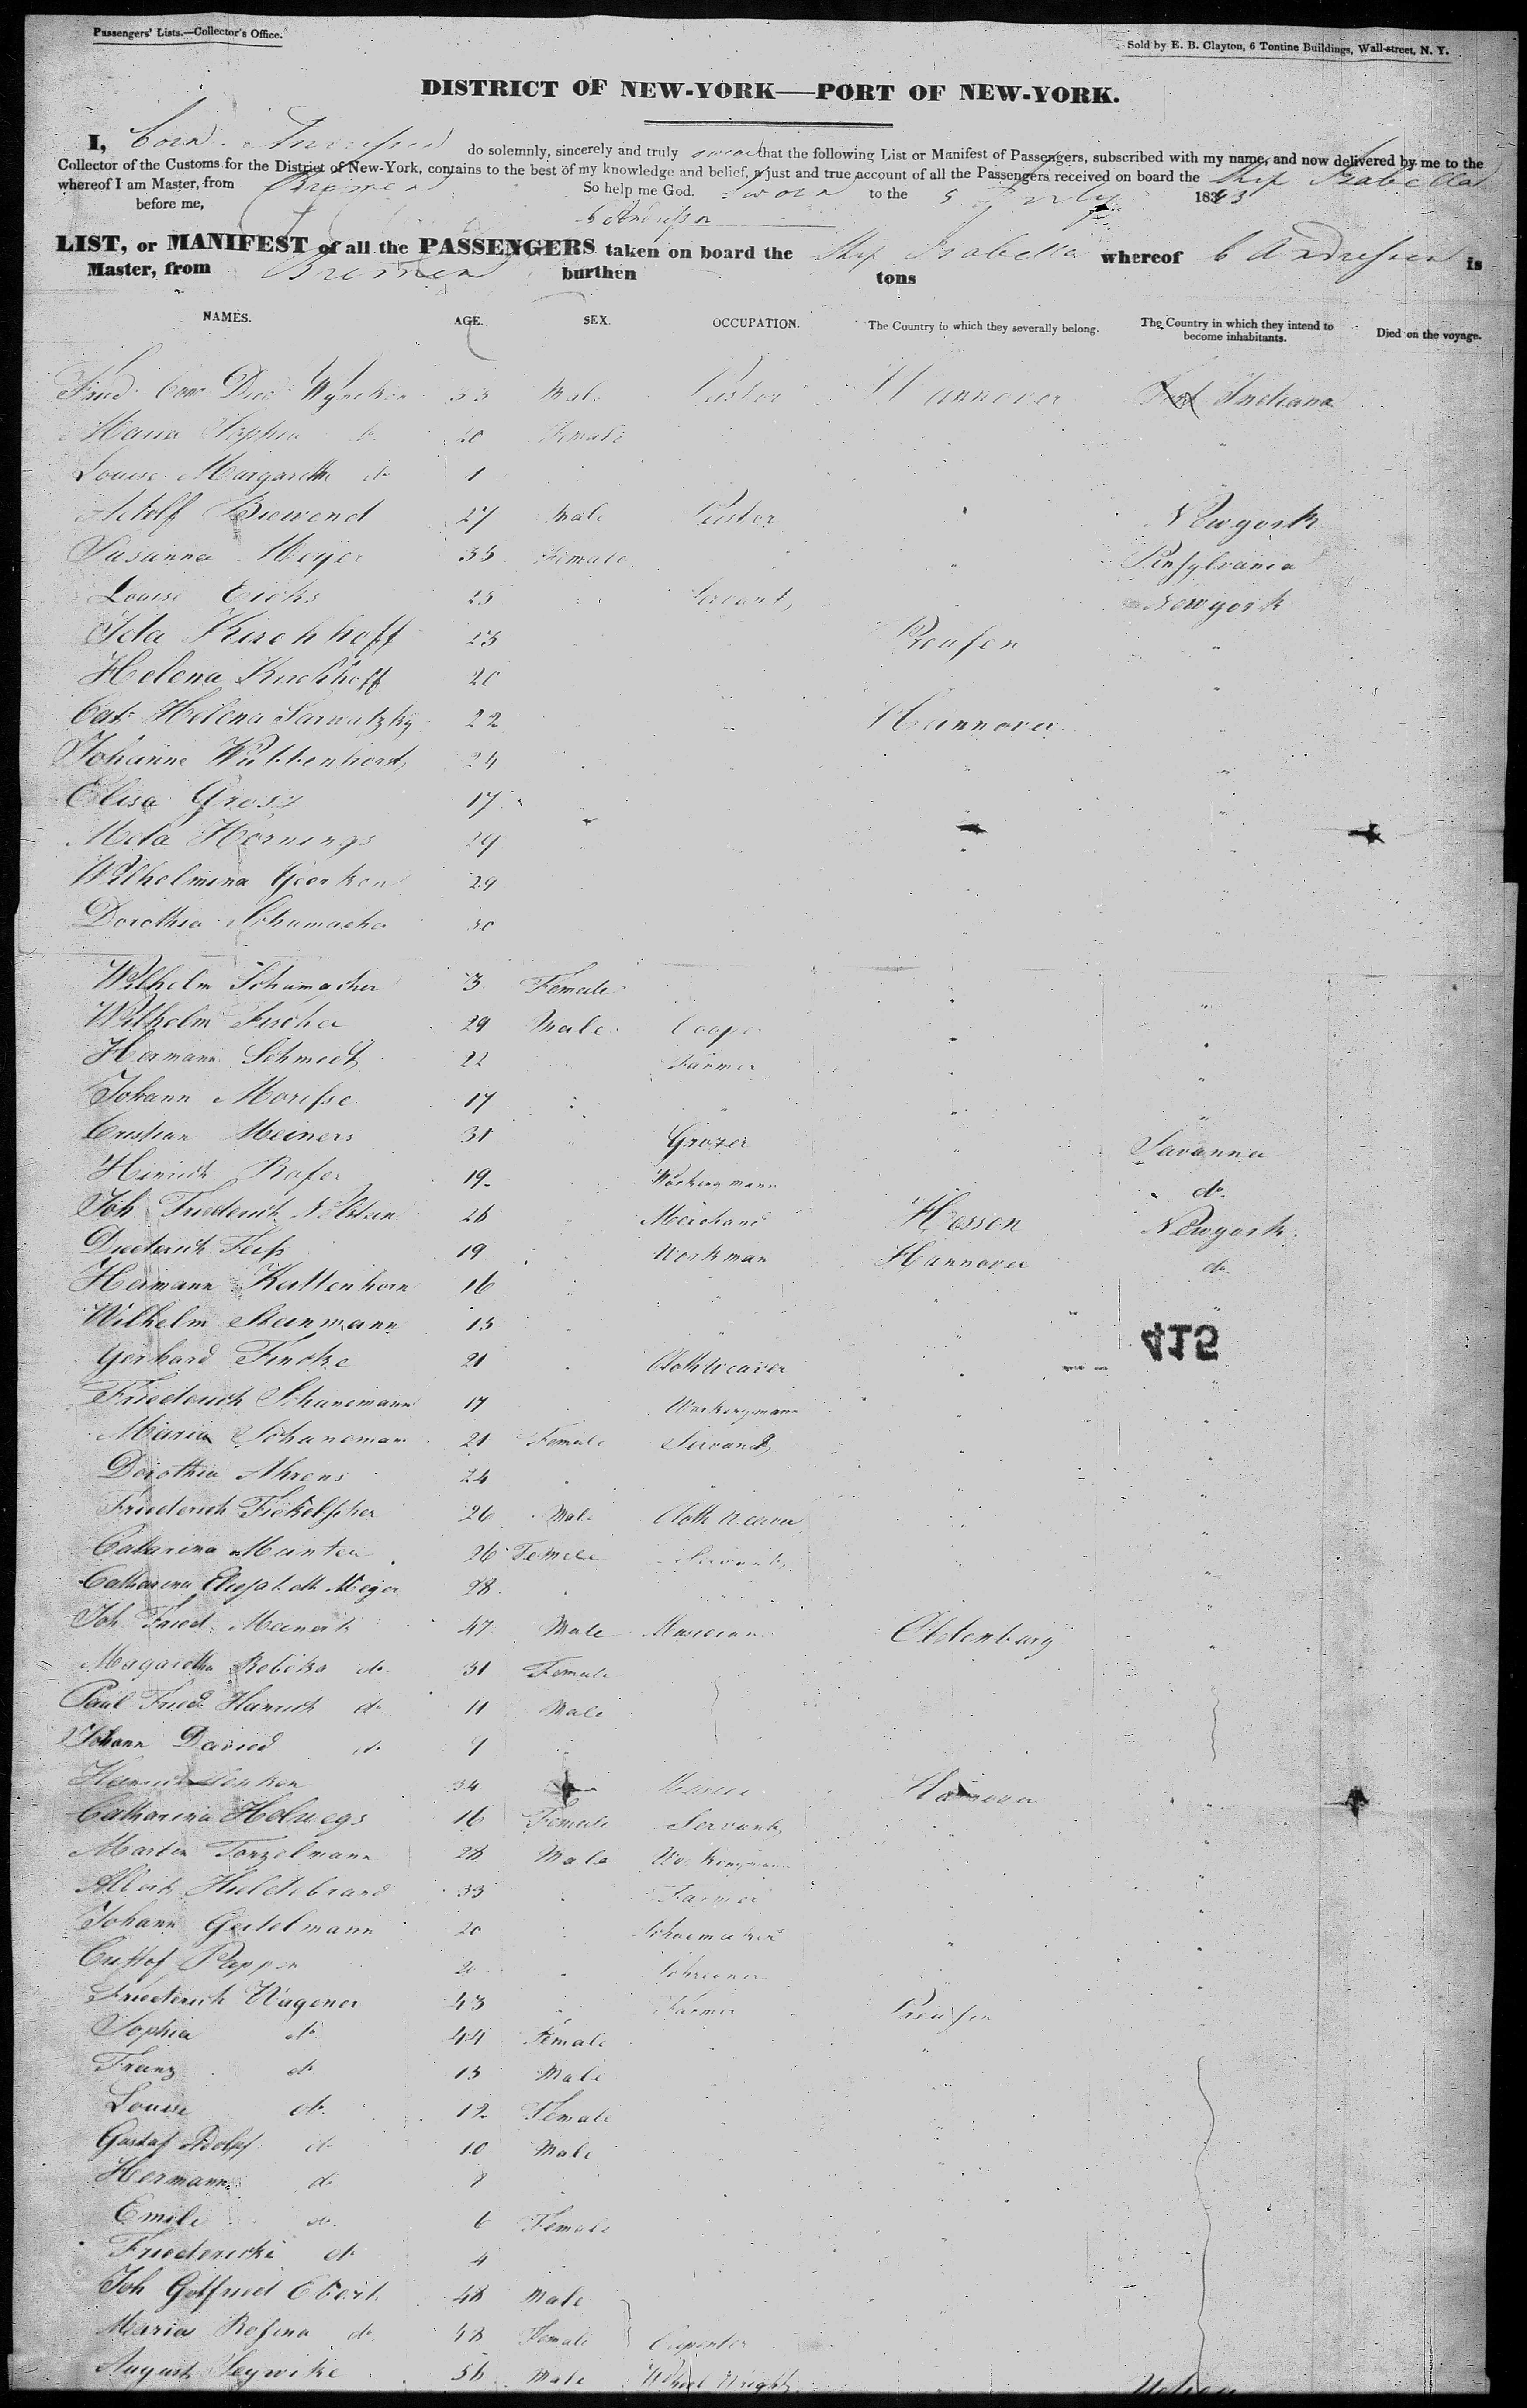 Passengers' Lists.—Collector's Office.
Sold by E. B. Clayton, 6 Tontine Buildings, Wall-street, N. Y.
DISTRICT OF NEW-YORK—PORT OF NEW-YORK.
I, do solemnly, sincerely and truly swear that the following List or Manifest of Passengers, subscribed with my name, and now delivered by me to the
Collector of the Customs for the District of New-York, contains to the best of my knowledge and belief, a just and true account of all the Passengers received on board the Ship Isabella
whereof I am Master, from Bremen So help me God.
Sworn to the 5 July 1843
before me, C Andressen
LIST, or MANIFEST of all the PASSENGERS taken on board the Ship Isabella whereof C Andressen is
Master, from Bremen burthen tons
NAMES. AGE. SEX. OCCUPATION. The Country to which they severally belong. The Country in which they intend to become inhabitants. Died on the voyage.
Fried. Con. Died. Wyneken 33 Male Pastor Hannover Indiana
Maria Sophia do 20 Female "
Louise Margarethe do 1
Adolf Biewend 27 Male Pastor " Newyork
Susanna Meyer 35 Female " Pensylvania
Louise Eicks 25 Servant Newyork
Ida Kirchhoff 23 Preusen "
Helena Kirchhoff 20 "
Cat. Helena 22 " Hannover
Johanne Wübbenhorst 24 " "
Elisa Grosz 17 "
Meta Hornings 29 " "
Wilhelmina Geerken 29
Dorothea Schumacher 30 " "
Wilhelm Schumacher 3 Female " "
Wilhelm Fischer 29 Male Cooper " "
Hermann Schmidt 22 Farmer " "
Johann Moresse 17 " " " "
Cristian Meiners 31 " Grozer " Savanna
Hinrich Rofer 19 Workingmann do.
Joh Friederich 26 " Merchand Hessen Newyork.
Diederich Feess 19 Workman Hannover do.
Hermann Kattenhorn 16 " " "
Wilhelm Steinmann 15 " "
415
Gerhard Fincke 21 Clothweaver " "
Friederich Schünemann 17 Workingmann " "
Maria Schüneman 21 Female Servant " "
Dorothea Ahrens 24 " " " "
Friederich Fickelscher 26 Male Cloth weaver " "
Catarina Munter 26 Female Servant "
Catharina Elisabeth Meyer 28 "
Joh Fried. Meinert 47 Male Musician Oldenburg "
Magaretha Rebeka do 31 Female
Paul Fried. Hinrich do 11 Male
Johann David do 9
Hinrich 34 Hannover "
Catharina Helmegs 16 Female Servant " "
Martin Tonzelmann 28 Male Workingmann
Albert Hildebrand 33 Farmer "
Johann Gerdelmann 20 Schoemaker " "
Custof 20 " Schreener "
Friederich Wagener 43 " Farmer Preusen
Sophia do 44 Female "
Franz do 15 Male
Louise do. 12 Female
Gustaf Adolf do 10 Male
Hermann do. 8
Emile do. 6 Female
Friedericke do 4
Joh Gotfried Ebert 48 Male
Maria Rosina do 48 Female Carpenter
August 36 Male Wheel Wright